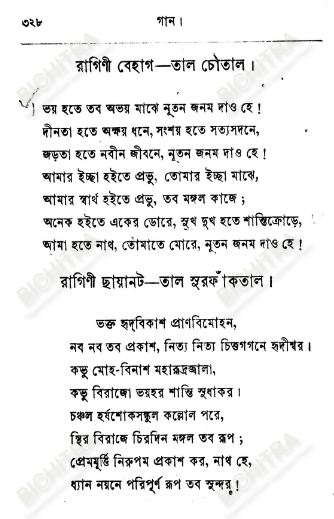 ৩২৮ গান।
রাগিণী বেহাগ—তাল চৌতাল।
ভয় হতে তব অভয় মাঝে নূতন জনম দাও হে!
দীনতা হতে অক্ষয় ধনে, সংশয় হতে সত্যসদনে,
জড়তা হতে নবীন জীবনে, নূতন জনম দাও হে!
আমার ইচ্ছা হইতে প্রভু, তোমার ইচ্ছা মাঝে,
আমার স্বার্থ হইতে প্রভু, তব মঙ্গল কাজে;
অনেক হইতে একের ডোরে, সুখ দুখ হতে শান্তিক্রোড়ে,
আমা হতে নাথ, তোমাতে মোরে, নূতন জনম দাও হে!
রাগিণী ছায়ানট—তাল সুরফাঁকতাল।
ভক্ত হৃদ্‌বিকাশ প্রাণবিমোহন,
নব নব তব প্রকাশ, নিত্য নিত্য চিত্তগগনে হৃদীশ্বর।
কভু মোহ-বিনাশ মহারুদ্রজ্বালা,
কভু বিরাজো ভয়হর শান্তি সুধাকর।
চঞ্চল হর্ষশোকসঙ্কুল কল্লোল পরে,
স্থির বিরাজে চিরদিন মঙ্গল তব রূপ;
প্রেমমূর্ত্তি নিরুপম প্রকাশ কর, নাথ হে,
ধ্যান নয়নে পরিপূর্ণ রূপ তব সুন্দর!
BICHITRA